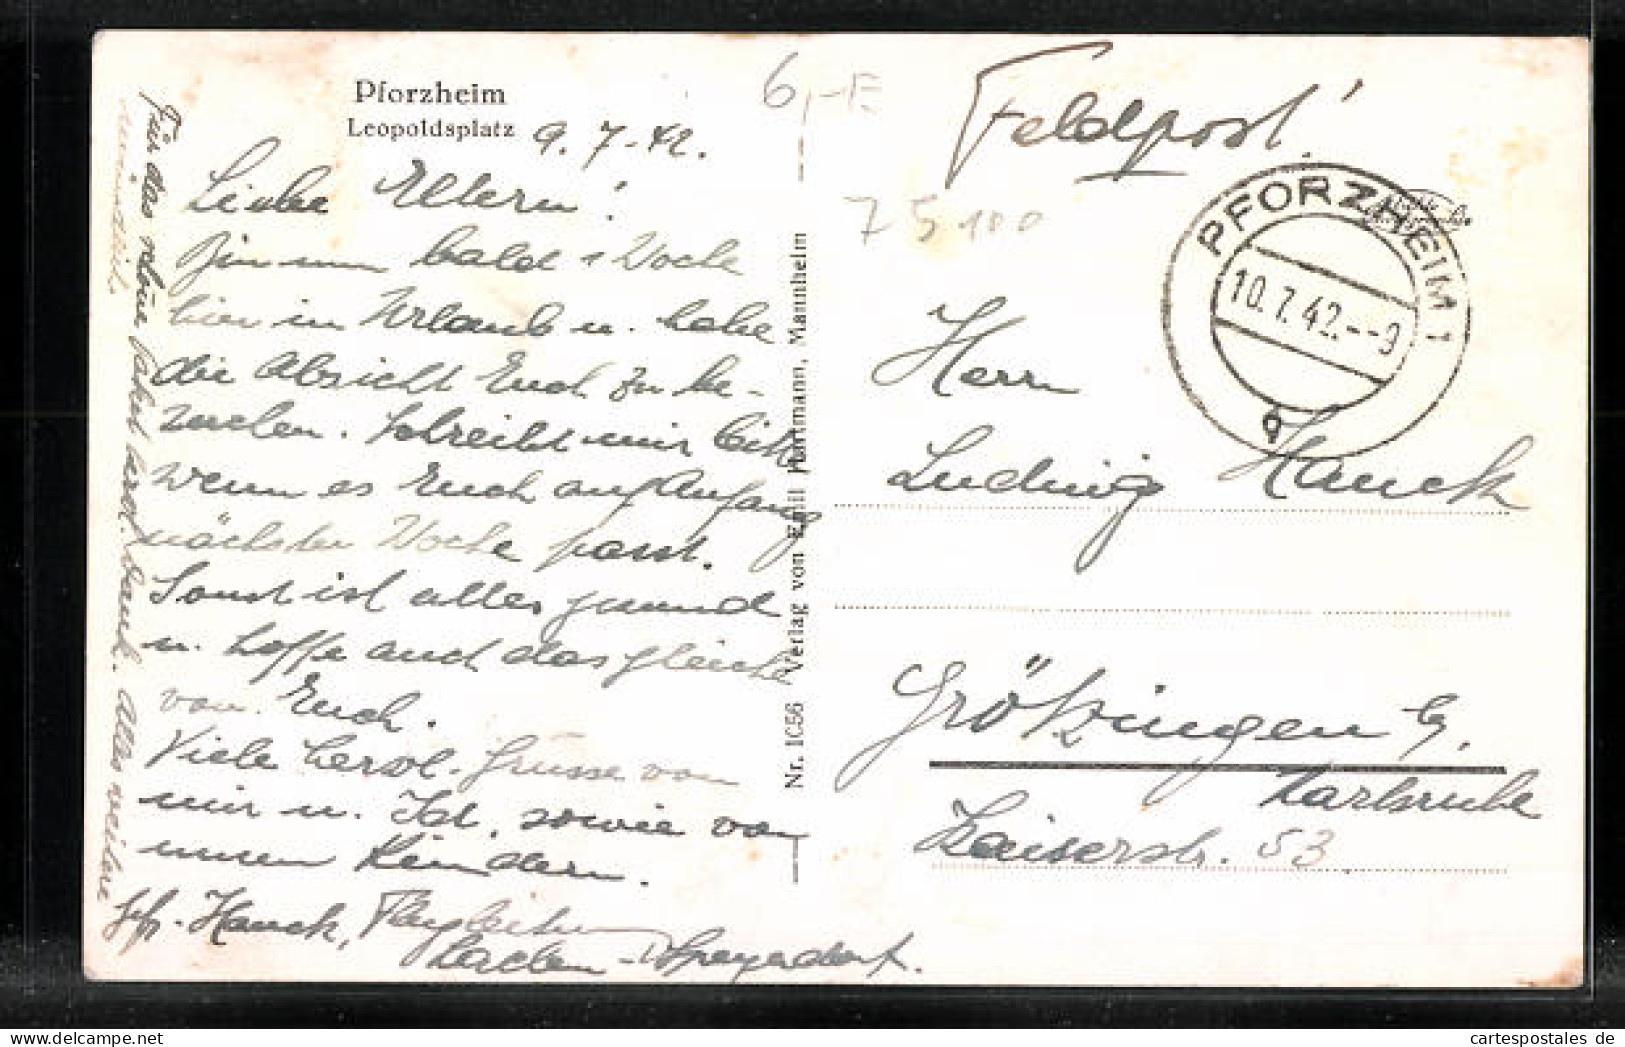 Pforzheim
Leopoldsplatz 9.7.42.
Liebe Eltern!
Bin nun bald 1 Woche
hier in Urlaub u. habe
die Absicht Euch zu be-
suchen. Schreibt mir bitte
wenn es Euch auf Anfang
nächster Woche passt.
Sonst ist alles gesund
u. hoffe auch das gleiche
von Euch.
Viele herzl. Grüsse von
mir u. Isl, sowie von
unsern Kindern.
Gefr. Hauck,
Lachen-Speyerdorf.
Für das
Dank. Alles weitere
mündlich.
Nr. 1056 Verlag von Emil Hartmann, Mannheim
6,-
75 100
Feldpost!
PFORZHEIM 1
10.7.42.--9
q
Herrn
Ludwig Hauck
Grötzingen b.
Karlsruhe
Kaiserstr. 53
cartespostales de